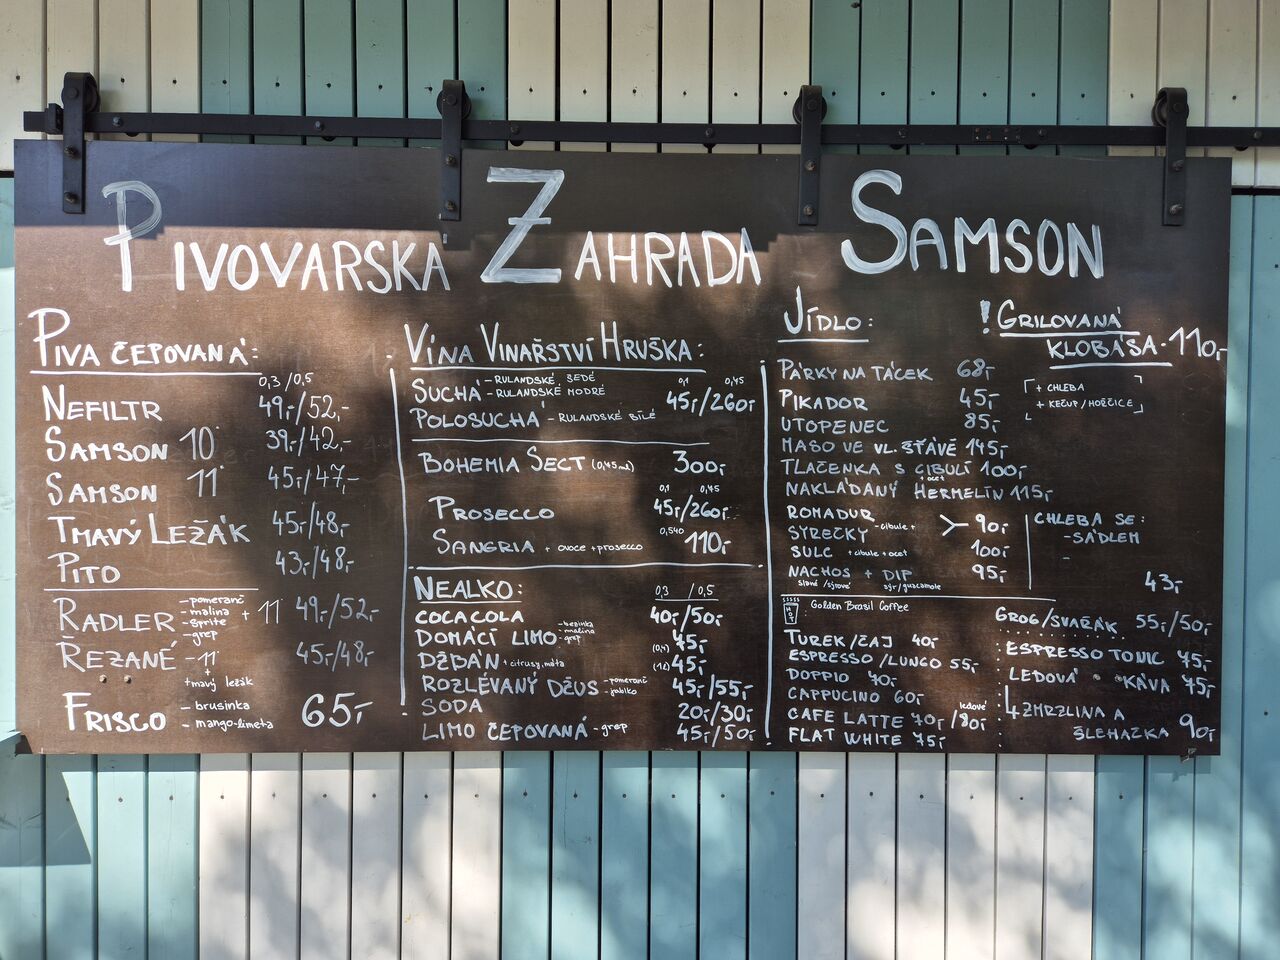 PIVOVARSKA ZAHRADA SAMSON
PIVA ČEPOVANÁ:
0,3/0,5
NEFILTR 49,-/52,-
SAMSON 10 39,-/42,-
SAMSON 11 45,-/47,-
TMAVÝ LEŽÁK 45,-/48,-
PITO 43,-/48,-
RADLER - pomeranč - malina - sprite - grep + 11 49,-/52,-
ŘEZANÉ - 11 + tmavý ležák 45,-/48,-
FRISCO - brusinka - mango-limeta 65,-
VÍNA VINAŘSTVÍ HRUŠKA:
SUCHÁ - RULANDSKÉ ŠEDÉ
- RULANDSKÉ MODRÉ
0,1 0,75
45,-/260,-
POLOSUCHÁ - RULANDSKÉ BÍLÉ
BOHEMIA SECT 300,-
0,1 0,75
PROSECCO 45,-/260,-
SANGRIA + ovoce + prosecco 0,540 110,-
NEALKO: 0,3 / 0,5
COCACOLA 40,-/50,-
DOMÁCÍ LIMO - bezinka - malina - grep 45,-
DŽBÁN + citrusy, máta (1L) 45,-
ROZLÉVANÝ DŽUS - pomeranč - jablko 45,-/55,-
SODA 20,-/30,-
LIMO ČEPOVANÁ - grep 45,-/50,-
JÍDLO:
PÁRKY NA TÁCEK 68,-
PIKADOR 45,-
UTOPENEC 85,-
MASO VE VL. ŠŤÁVĚ 145,-
TLAČENKA S CIBULÍ 100,-
+ ocet
NAKLÁDANÝ HERMELÍN 115,-
ROMADUR
SYREČKY - cibule + 90,-
SULC + cibule + ocet 100,-
NACHOS + DIP 95,-
slané / sýrové sýr/guacamole
! GRILOVANÁ
KLOBÁSA - 110,-
+ CHLEBA
+ KEČUP / HOŘČICE
CHLEBA SE:
- SÁDLEM
-
43,-
HOT
Golden Brasil Coffee
TUREK/ČAJ 40,-
ESPRESSO/LUNGO 55,-
DOPPIO 70,-
CAPPUCINO 60,-
ledové
CAFE LATTE 70,-/80,-
FLAT WHITE 75,-
GROG/SVAŘÁK 55,-/50,-
ESPRESSO TONIC 75,-
LEDOVÁ KÁVA 75,-
ZMRZLINA A
ŠLEHAČKA 90,-